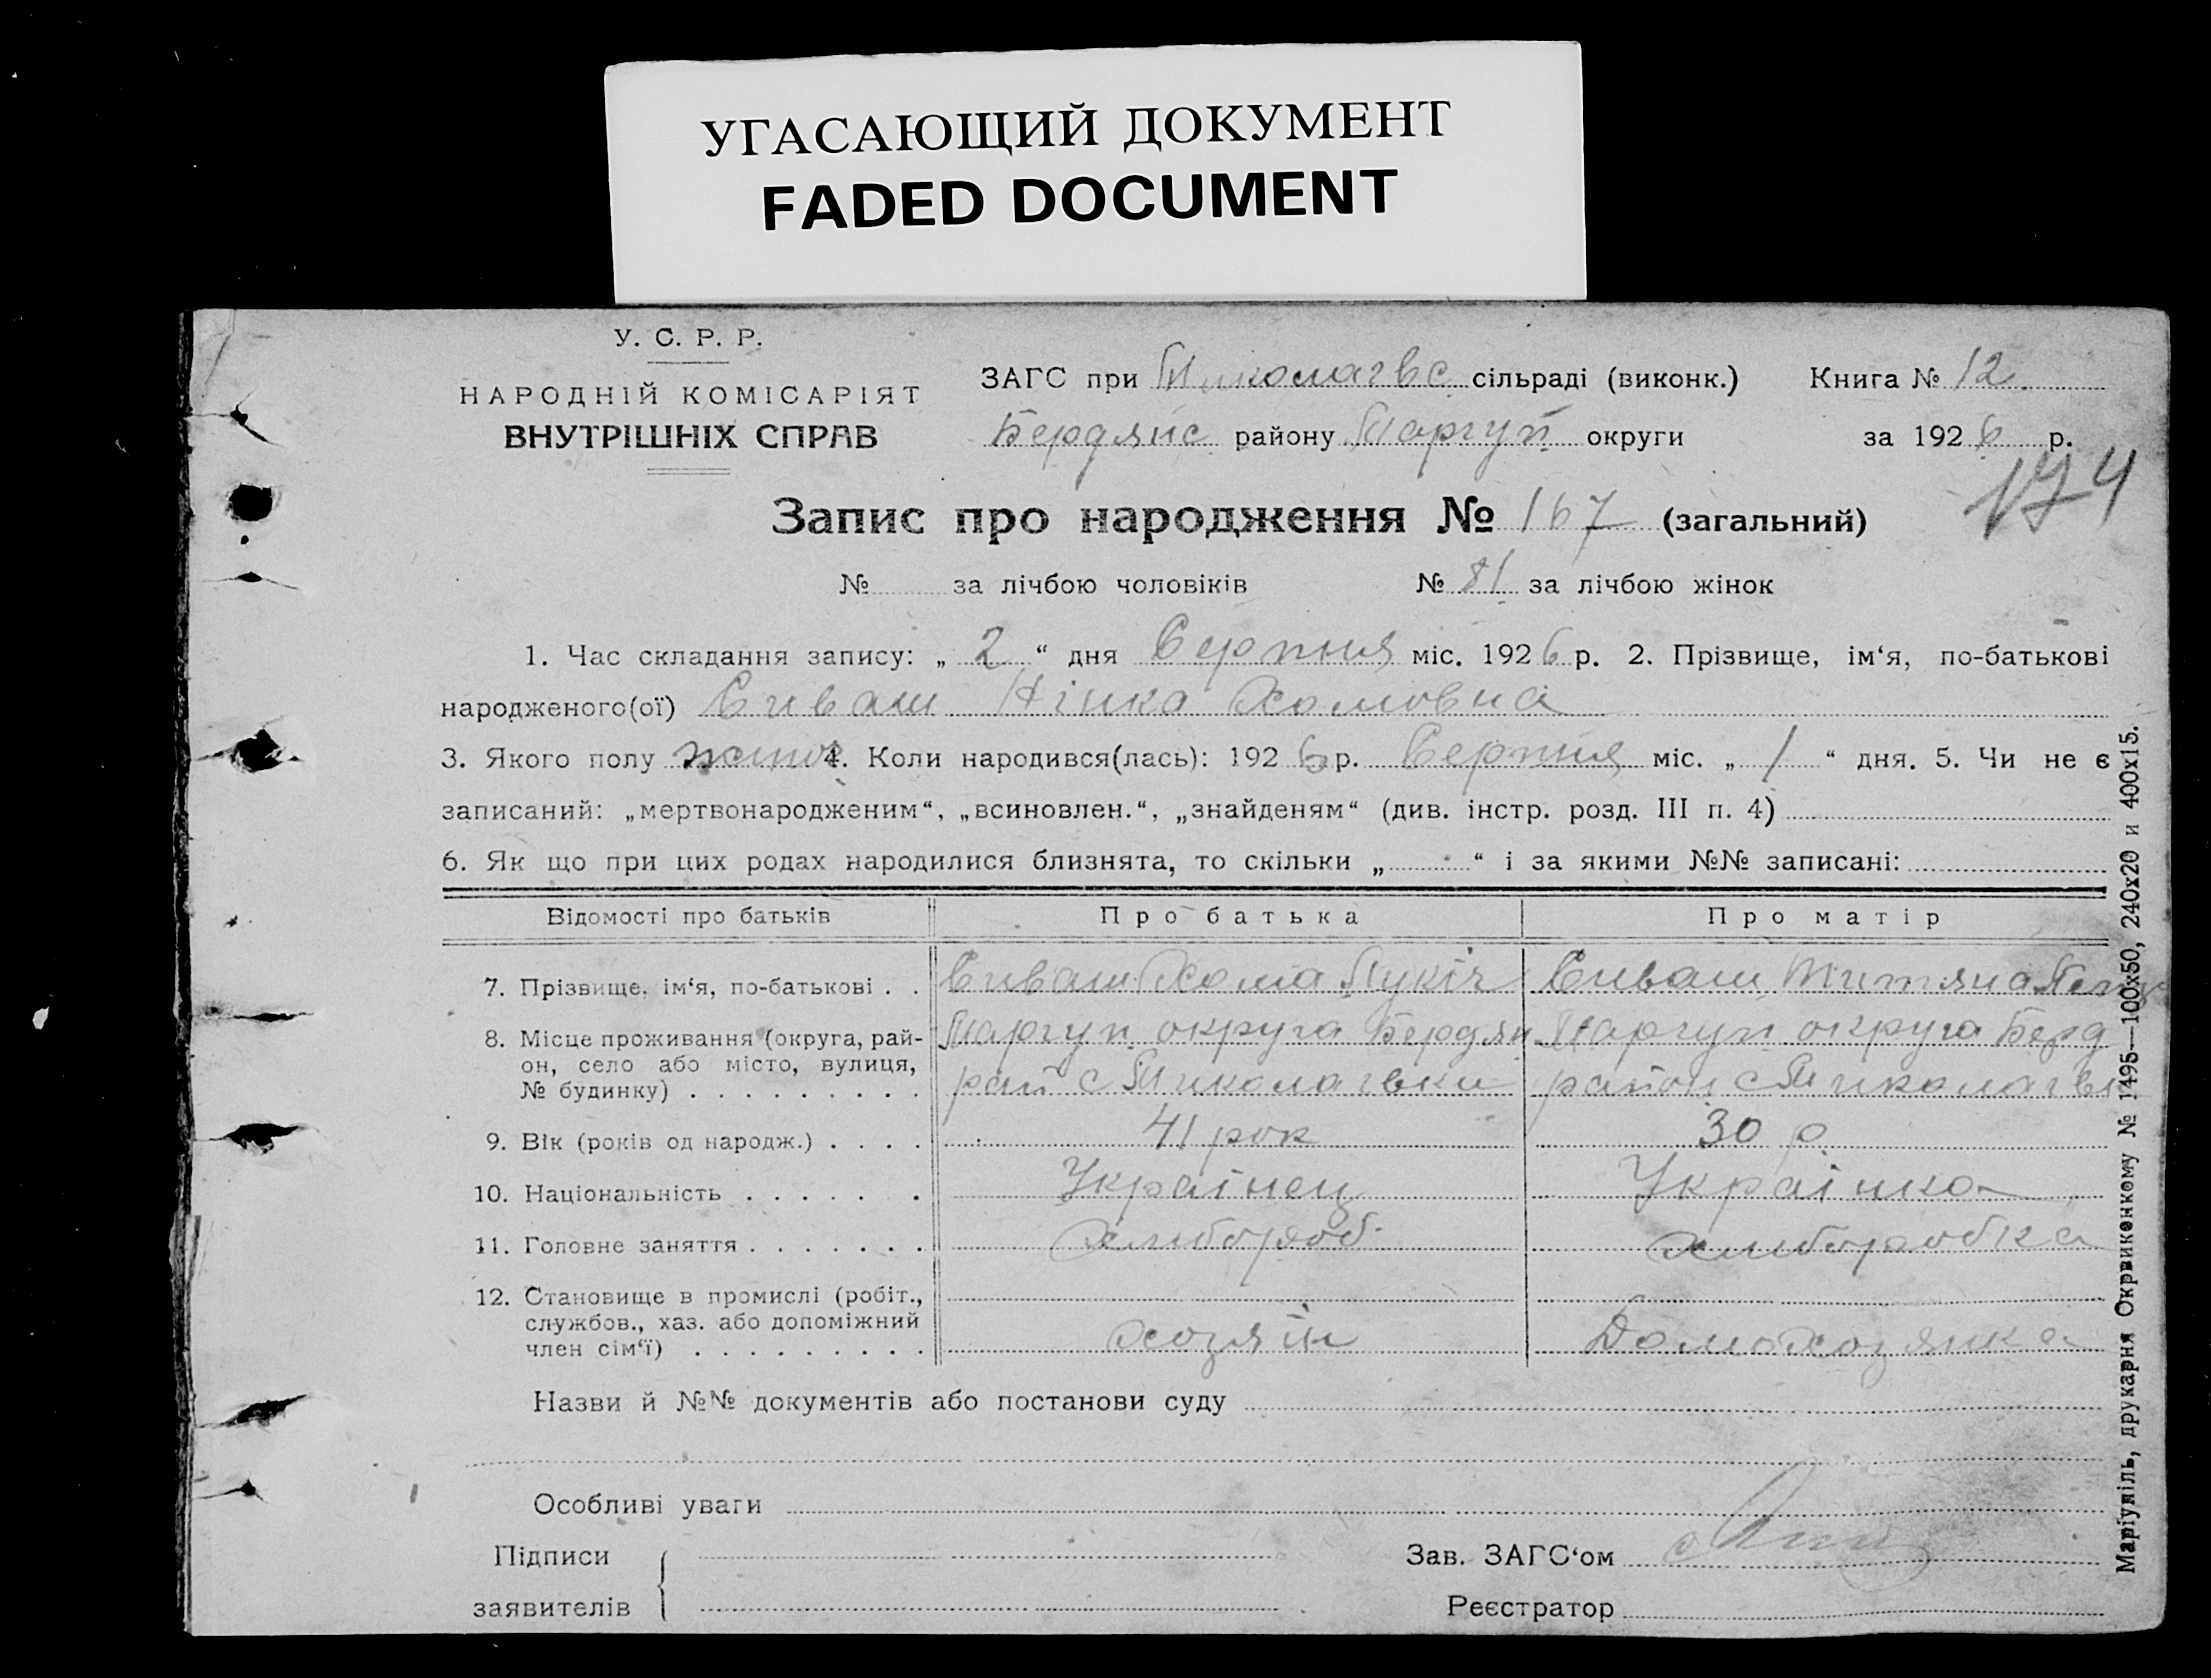 УГАСАЮЩИЙ ДОКУМЕНТ
FADED DOCUMENT
У. С. Р. Р.
НАРОДНІЙ КОМІСАРІЯТ
ВНУТРІШНІХ СПРАВ
ЗАГС при Миколаевс сільраді (виконк.) Книга № 12
Бердянс району Маріуп округи за 1926 р.
174
Запис про народження № 167 (загальний)
№ за лічбою чоловіків № 81 за лічбою жінок
1. Час складання запису: „ 2 “ дня Серпня міс. 1926 р. 2. Прізвище, ім‘я, по-батькові
народженого(ої) Сиваш Нінка Хомовна
3. Якого полу 4. Коли народився(лась): 1926 р. Серпня міс. „ 1 “ дня. 5. Чи не є
записаний: „мертвонародженим“, „всиновлен.“, „знайденям“ (див. інстр. розд. III п. 4)
6. Як що при цих родах народилися близнята, то скільки „ “ і за якими №№ записані:
Відомості про батьків Про батька Про матір
7. Прізвище, ім‘я, по-батькові . . Сиваш Хома Лукіч Сиваш Титяна
8. Місце проживання (округа, рай-
он, село або місто, вулиця,
№ будинку) . . . . . . . . .
Маріуп округа Бердян
рай с Миколаевки
Маріуп округа Берд
район с Миколаевк
9. Вік (років од народж.) . . . . 41 рок 30 р
10. Національність . . . . . . Українец Українка
11. Головне заняття . . . . . . . Хлибороб Хлиборобка
12. Становище в промислі (робіт.,
службов., хаз. або допоміжний
член сім‘ї) . . . . . . . . . хозяїн Домохозяйка
Назви й №№ документів або постанови суду
Особливі уваги
Підписи
заявителів
Зав. ЗАГС‘ом
Реєстратор
Маріупіль, друкарня Окрвиконкому № 1495—100х50, 240х20 и 400х15.